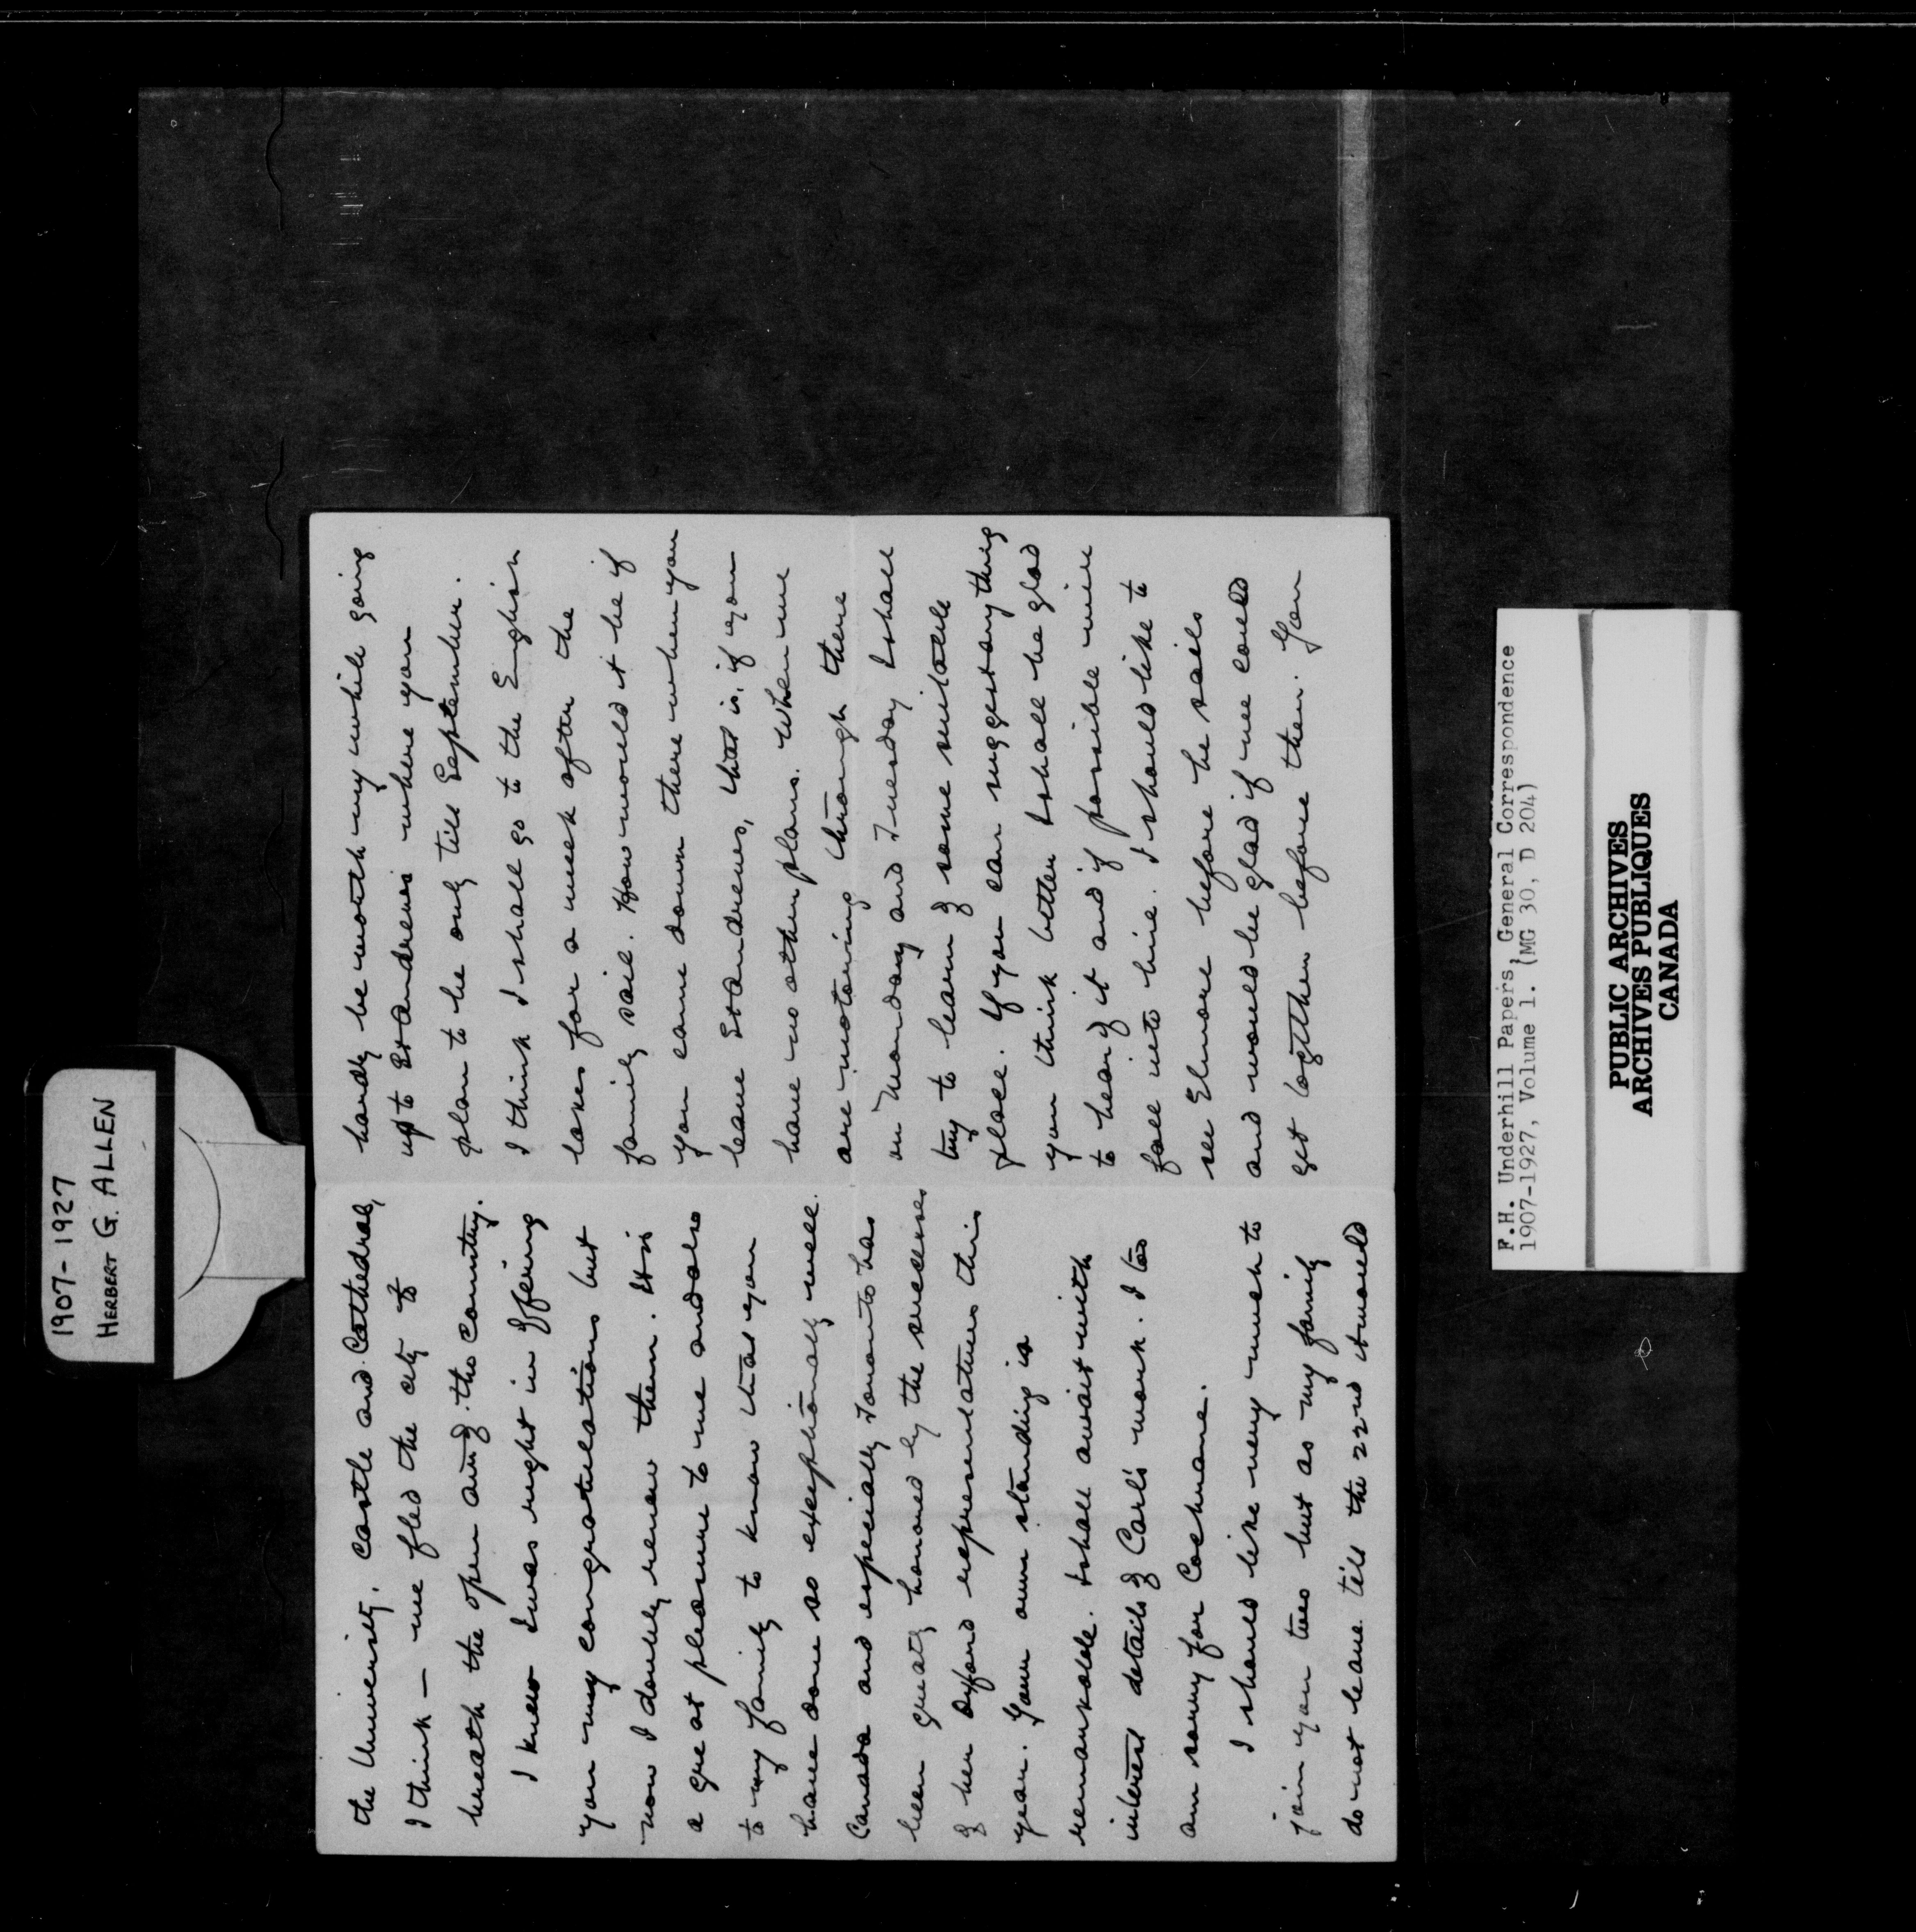 1907-1927
HERBERT G. ALLEN
the University, Castle and Cathedral,
I think — we fled the city to
breath the open air of the country.
I knew I was right in offering
you my congratulations but
now I doubly renew them. It is
a great pleasure to me and also
to my family to know that you
have done so exceptionally well.
Canada and especially Toronto has
been greatly honored by the successes
of her Oxford representatives this
year. Your own standing is
remarkable. I shall await with
interest details of Carl's work. I too
am sorry for Cochrane.
I should like very much to
join you two but as my family
do not leave till the 22nd it would
hardly be worth my while going
up to St Andrews where you
plan to be only till September.
I think I shall go to the English
lakes for a week after the
family sail. How would it be if
you came down there when you
leave St Andrews, that is, if you
have no other plans. When we
are motoring through there
on Monday and Tuesday I shall
try to learn of some suitable
place. If you can suggest anything
you think better I shall be glad
to hear of it and if possible will
fall into line. I should like to
see Elmore before he sails
and would be glad if we could
get together before then. You
F.H. Underhill Papers, General Correspondence
1907-1927, Volume 1. (MG 30, D 204)
PUBLIC ARCHIVES
ARCHIVES PUBLIQUES
CANADA